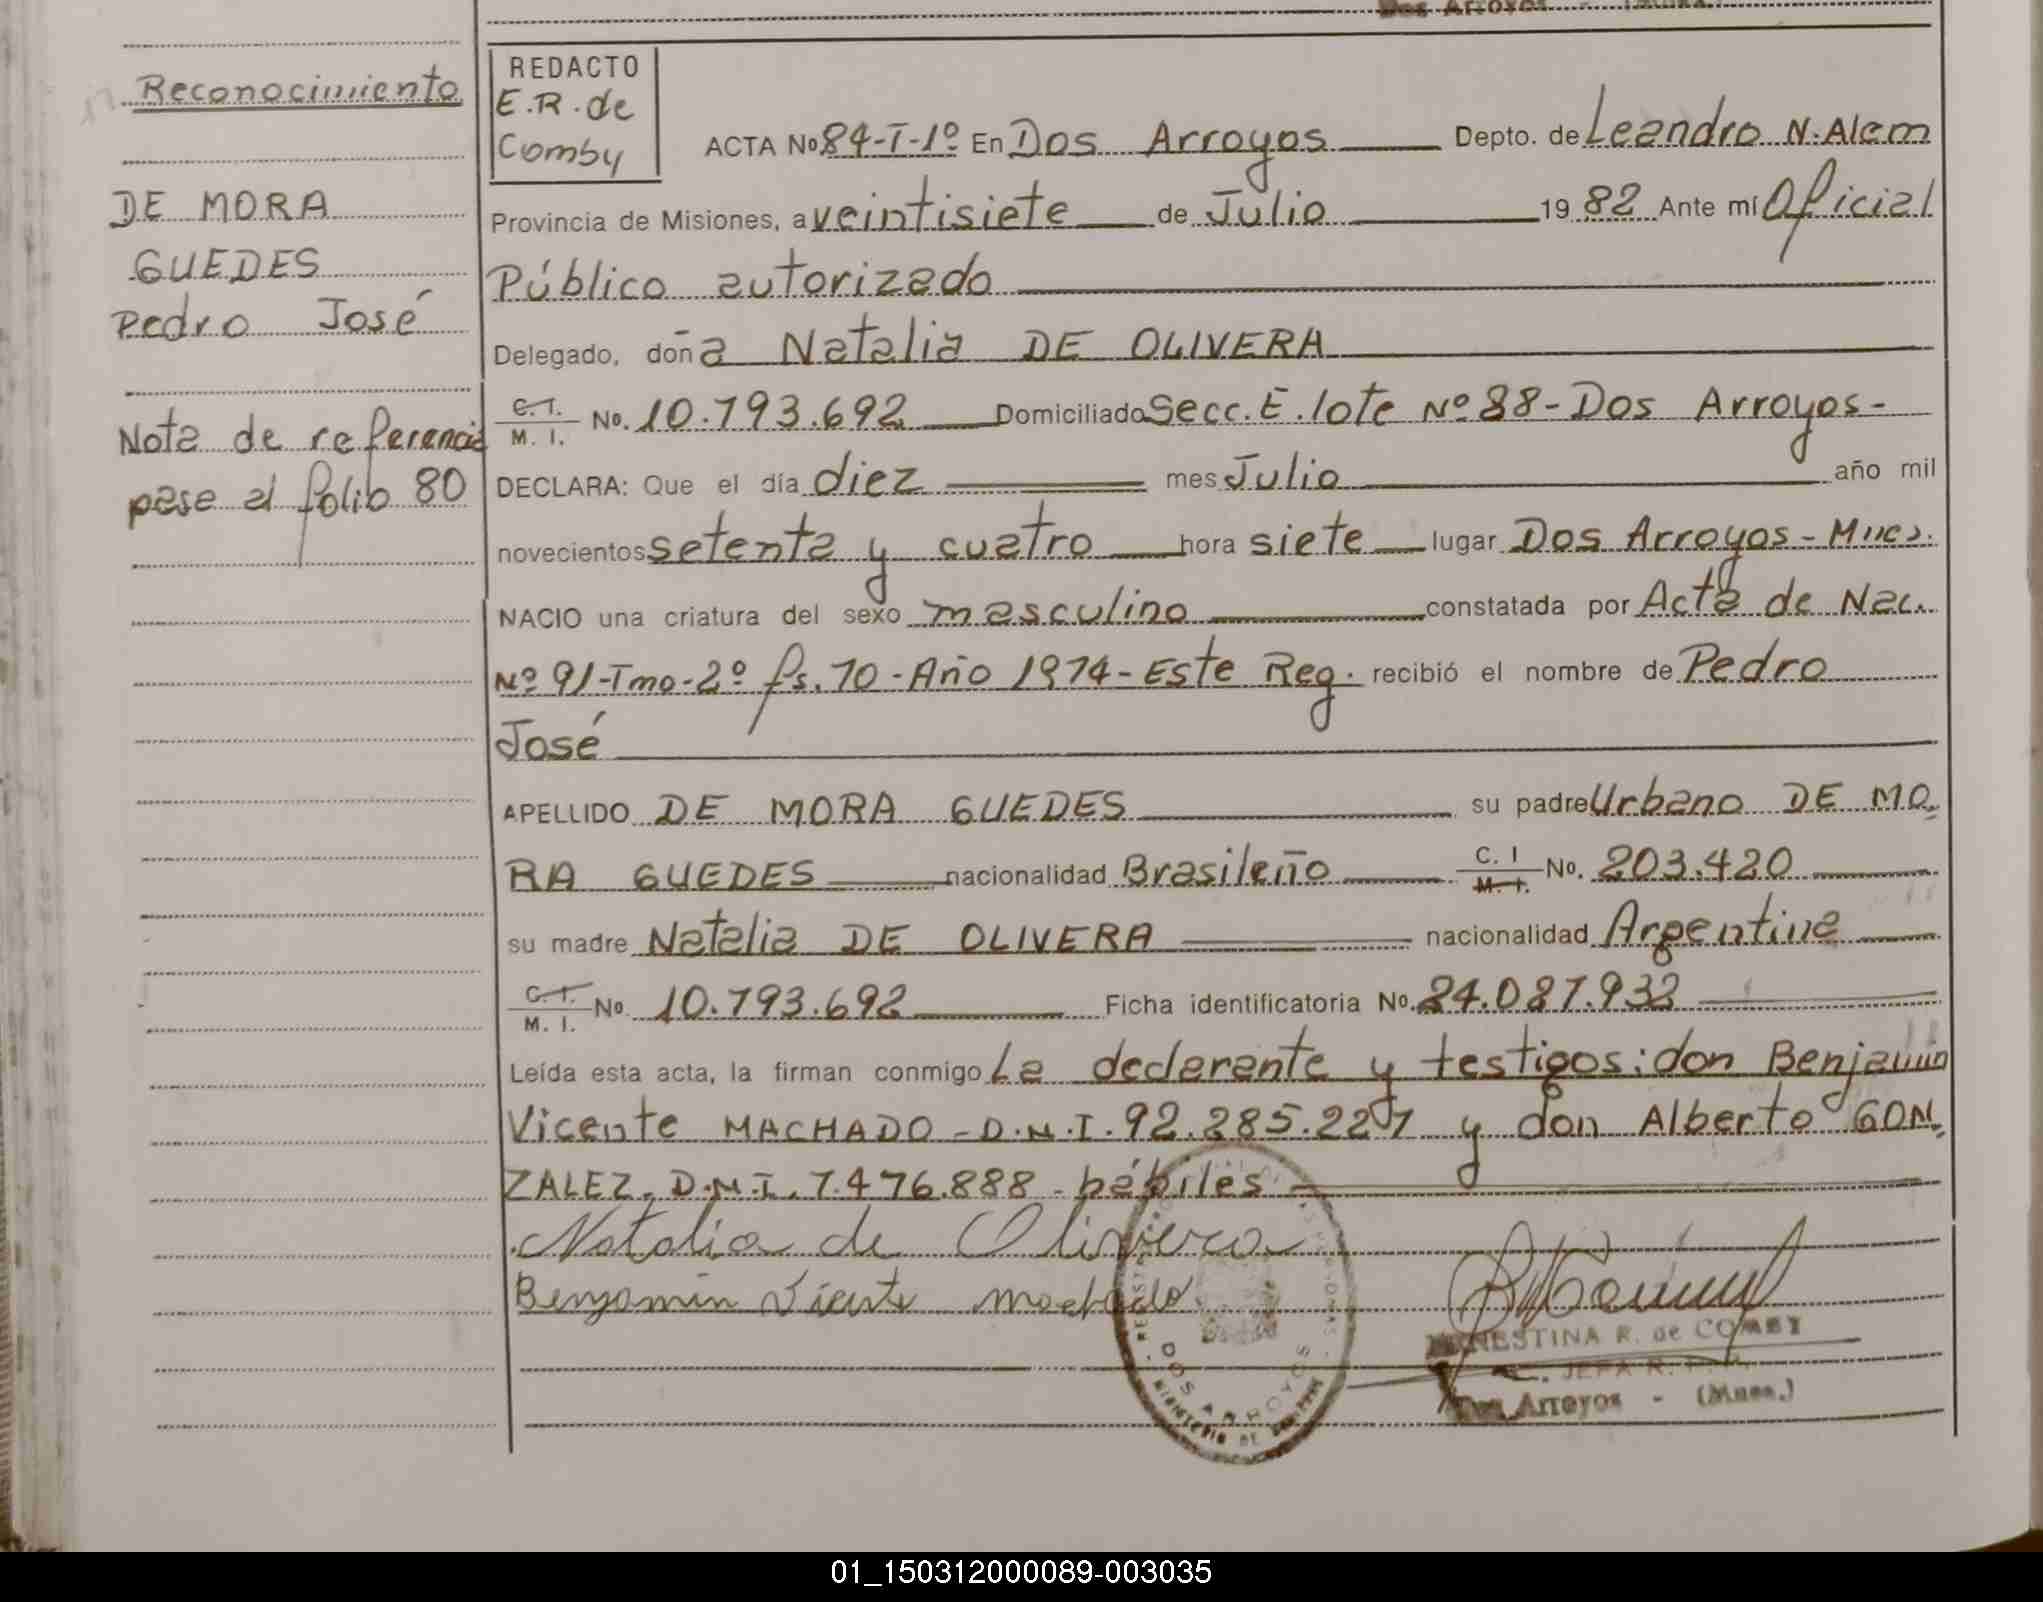 Dos Arroyos
Reconocimiento
DE MORA
GUEDES
Pedro José
Nota de referencia
pase al folio 80
REDACTO
E.R. de
Comby
ACTA No 84-T-1º En Dos Arroyos Depto. de Leandro N. Alem
Provincia de Misiones, a veintisiete de Julio 1982 Ante mí Oficial
Público autorizado
Delegado, doña Natalia DE OLIVERA
C.I. M. I. No. 10.793.692 Domiciliado Secc. E. lote Nº 88-Dos Arroyos-
DECLARA: Que el día diez mes Julio año mil
novecientos setenta y cuatro hora siete lugar Dos Arroyos - Mnes.
NACIO una criatura del sexo masculino constatada por Acta de Nac.
Nº 91-Tmo-2º fs. 70-Año 1974-Este Reg. recibió el nombre de Pedro
José
APELLIDO DE MORA GUEDES su padre Urbano DE MO-
RA GUEDES nacionalidad Brasileño C. I M. I. No. 203.420
su madre Natalia DE OLIVERA nacionalidad Argentina
C.I. M. I. No. 10.793.692 Ficha identificatoria No. 24.087.932
Leída esta acta, la firman conmigo La declarante y testigos: don Benjamin
Vicente MACHADO-D.N.I. 92.285.227 y don Alberto GON-
ZALEZ, D.N.I. 7.476.888 - hábiles -
Natalia de Olivera
Benjamin Vicente machado
ERNESTINA R. de COMBY
JEFA R.
Dos Arroyos - (Mnes.)
DOS ARROYOS
MINISTERIO DE
01_150312000089-003035